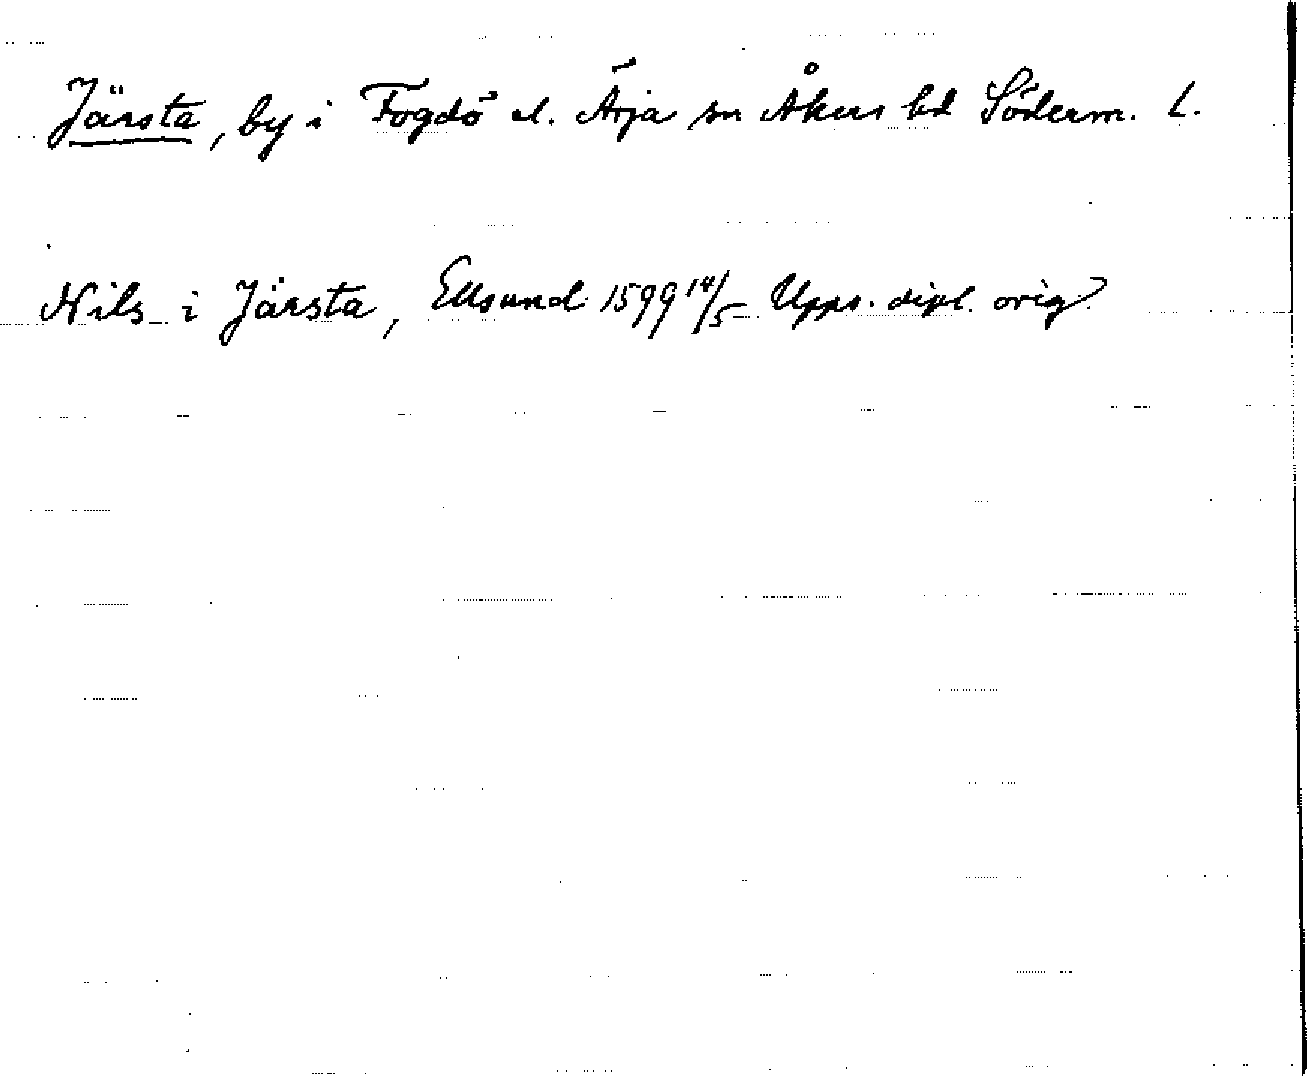 Järsta, by i Fogdö el. Ärja sn Åkers hd Söderm. L.
Nils i Järsta, Ellsund 1599 14/5 Upps. dipl. orig.